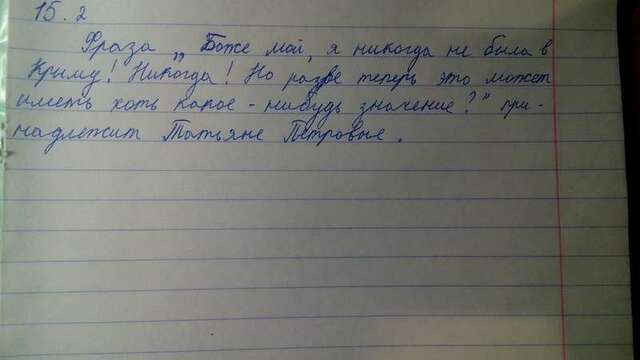 15.2
Фраза „Боже мой, я никогда не была в
Крыму! Никогда! Но разве теперь это может
иметь хоть какое-нибудь значение?" при-
надлежит Татьяне Петровне.